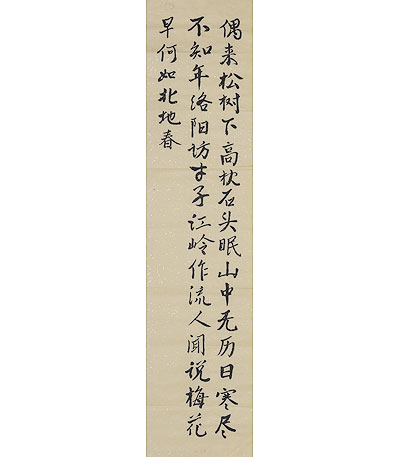 偶来松树下高枕石头眠山中无历日寒尽
不知年洛阳访才子江岭作流人闻说梅花
早何如北地春